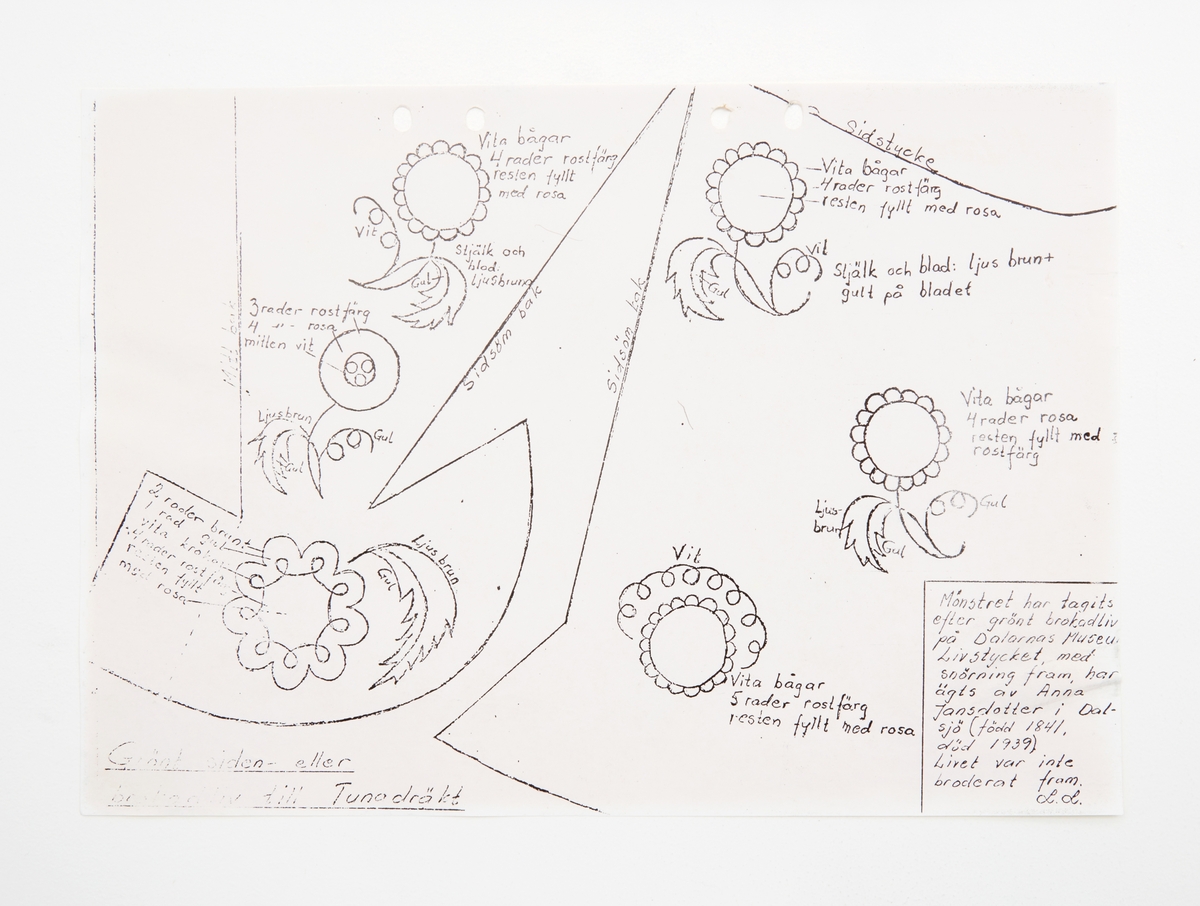 Vita bågar
4 rader rostfärg
resten fyllt
med rosa
Vit
Stjälk och
blad:
Ljusbrun
Gul
Mitt bak
3 rader rostfärg
4 -"- rosa
mitten vit
Sidsöm bak
Ljusbrun
Gul
Gul
2 rader brunt
1 rad gul
vita krokar
4 rader rostfärg
resten fyllt
med rosa
Ljusbrun
Gul
Grönt siden- eller
till Tunadräkt
Sidsöm bak
Sidstycke
Vita bågar
4 rader rostfärg
resten fyllt med rosa
Vit
Gul
Stjälk och blad: ljus brun+
gult på bladet
Vita bågar
4 rader rosa
resten fyllt med
rostfärg
Ljus-
brun
Gul
Gul
Vit
Vita bågar
5 rader rostfärg
resten fyllt med rosa
Mönstret har tagits
efter grönt brokadliv
på Dalarnas Museu
Livstycket, med
snörning fram, har
ägts av Anna
Jansdotter i Dal-
sjö (född 1841,
död 1939)
Livet var inte
broderat fram.
L.L.